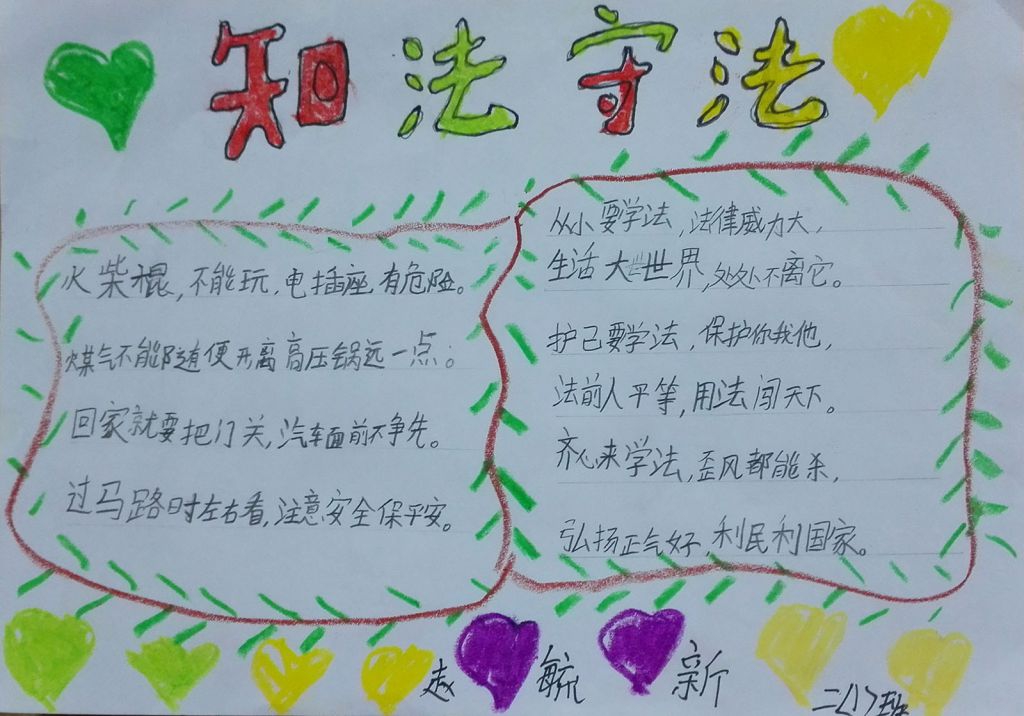 知法守法
火柴棍,不能玩,电插座,有危险。
煤气不能随便开离高压锅远一点。
回家就要把门关,汽车面前不争先。
过马路时左右看,注意安全保平安。
从小要学法,法律威力大,
生活大世界,处处不离它。
护己要学法,保护你我他,
法前人平等,用法闯天下。
齐心来学法,歪风都能杀,
弘扬正气好,利民利国家。
赵毓新
二(1)班